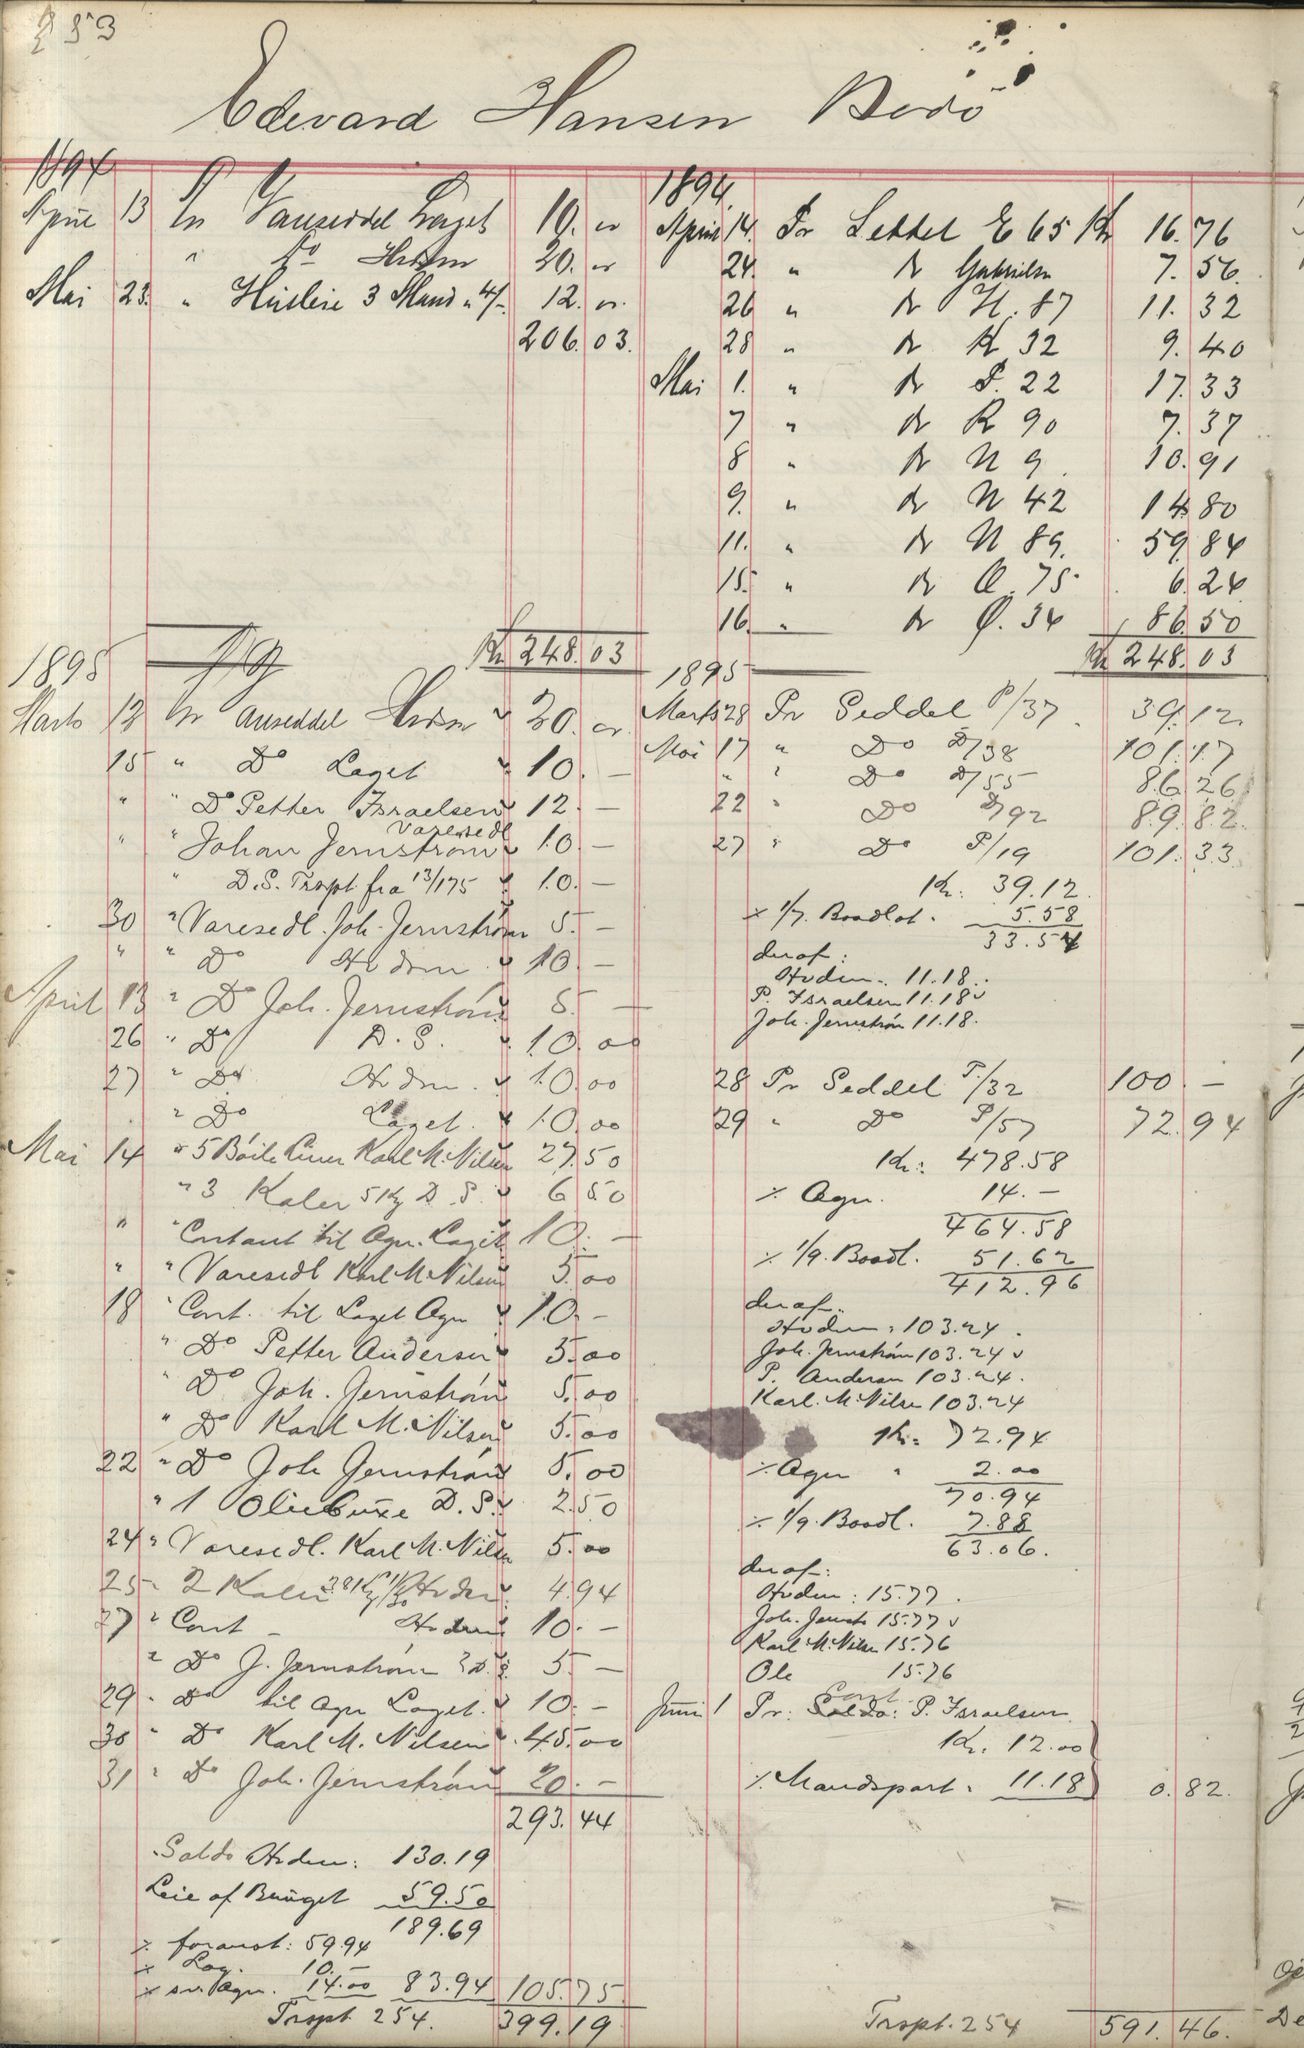 253
Edevard Hansen Bodö
1894
April 13 Pr Vareseddel Laget 10. "
" Do Hsdom 20. "
Mai 23. " Husleie 3 Mand " 4/- 12. "
206.03.
Kr 248.03
1895
Marts 12 Pr vareseddel 20. "
15 " Do Laget 10. –
" " Do Petter Israelsen 12. –
" " Johan Jernström Varesedl 10 –
" D.S. Trspt fra 13/175 10. –
30 " Varesedl. Joh. Jernström 5. –
" " Do 10. –
April 13 " Do Joh. Jernström 5. –
26 " Do D.S. 10.00
27 " Do 10.00
" Do Laget. 10.00
Mai 14 " 5 Böile Liner Karl M. Nilsen 27.50
" 3 Kaler 5 Kg D.S. 6 50
" " Contant til Agn. Laget 10. –
" " Varesedl Karl M Nilsen 5.00
18 " Cont. til Laget Agn 10. –
" Do Petter Andersen 5.00
" Do Joh. Jernström 5.00
" Do Karl M. Nilsen 5.00
22 " Do Joh Jernström 5.00
" 1 Oliebuxe D.S. 2.50
24 " Varesedl. Karl M. Nilsen 5.00
25 " 2 Kaler 4.94
27 " Cont – 10. –
" Do J. Jernström 5 –
29 " Do til Agn Laget. 10. –
30 " Do Karl M. Nilsen 45.00
31 " Do Joh. Jernström 20. –
293.44
Saldo 130.19
Leie af Bruget 59.50
189.69
% foranst: 59.94
% Lag. 10. –
% sv. Agn. 14.00 83.94 105.75
Trspt 254. 399.19
1894
April 14. Pr Seddel E 65 Kr 16.76
24. " do Gabrielsen 7.56
26 " do H. 87 11.32
28 " do K 32 9.40
Mai 1. " do P. 22 17.33
7 " do R 90 7.37
8 " do N 9 10.91
9. " do N 42 14.80
11. " do N 89. 59.84
15. " do O. 75. 6.24
16. " do Q. 34 86.50
Kr 248.03
1895
Marts 28 Pr Seddel P/37 39.12
Mai 17 " Do D/38 101.17
" " Do D/55 86.26
22 " Do D/92 89.82
27 " Do P/19 101.33
Kr: 39.12
% 1/7. Baadlot. 5.58
33.54
deraf:
11.18.
P. Israelsen 11.18
Joh. Jernström 11.18.
28 Pr Seddel P/32 100. –
29 " Do P/57 72.94
Kr: 478.58
% Agn. 14. –
464.58
% 1/9. Baadl. 51.62
412.96
deraf:
103.24.
Joh. Jernström 103.24
P. Andersen 103.24.
Karl. M. Nilsen 103.24
Kr: 72.94
% Agn " 2.00
70.94
% 1/9. Baadl. 7.88
63.06.
deraf:
15.77.
Joh. Jernstr 15.77
Karl M. Nilsen 15.76
Ole 15.76
Juni 1 Pr: Cont Saldo: P. Israelsen
Kr. 12.00
% Mandspart. 11.18 0.82.
Trspt. 254 591.46.